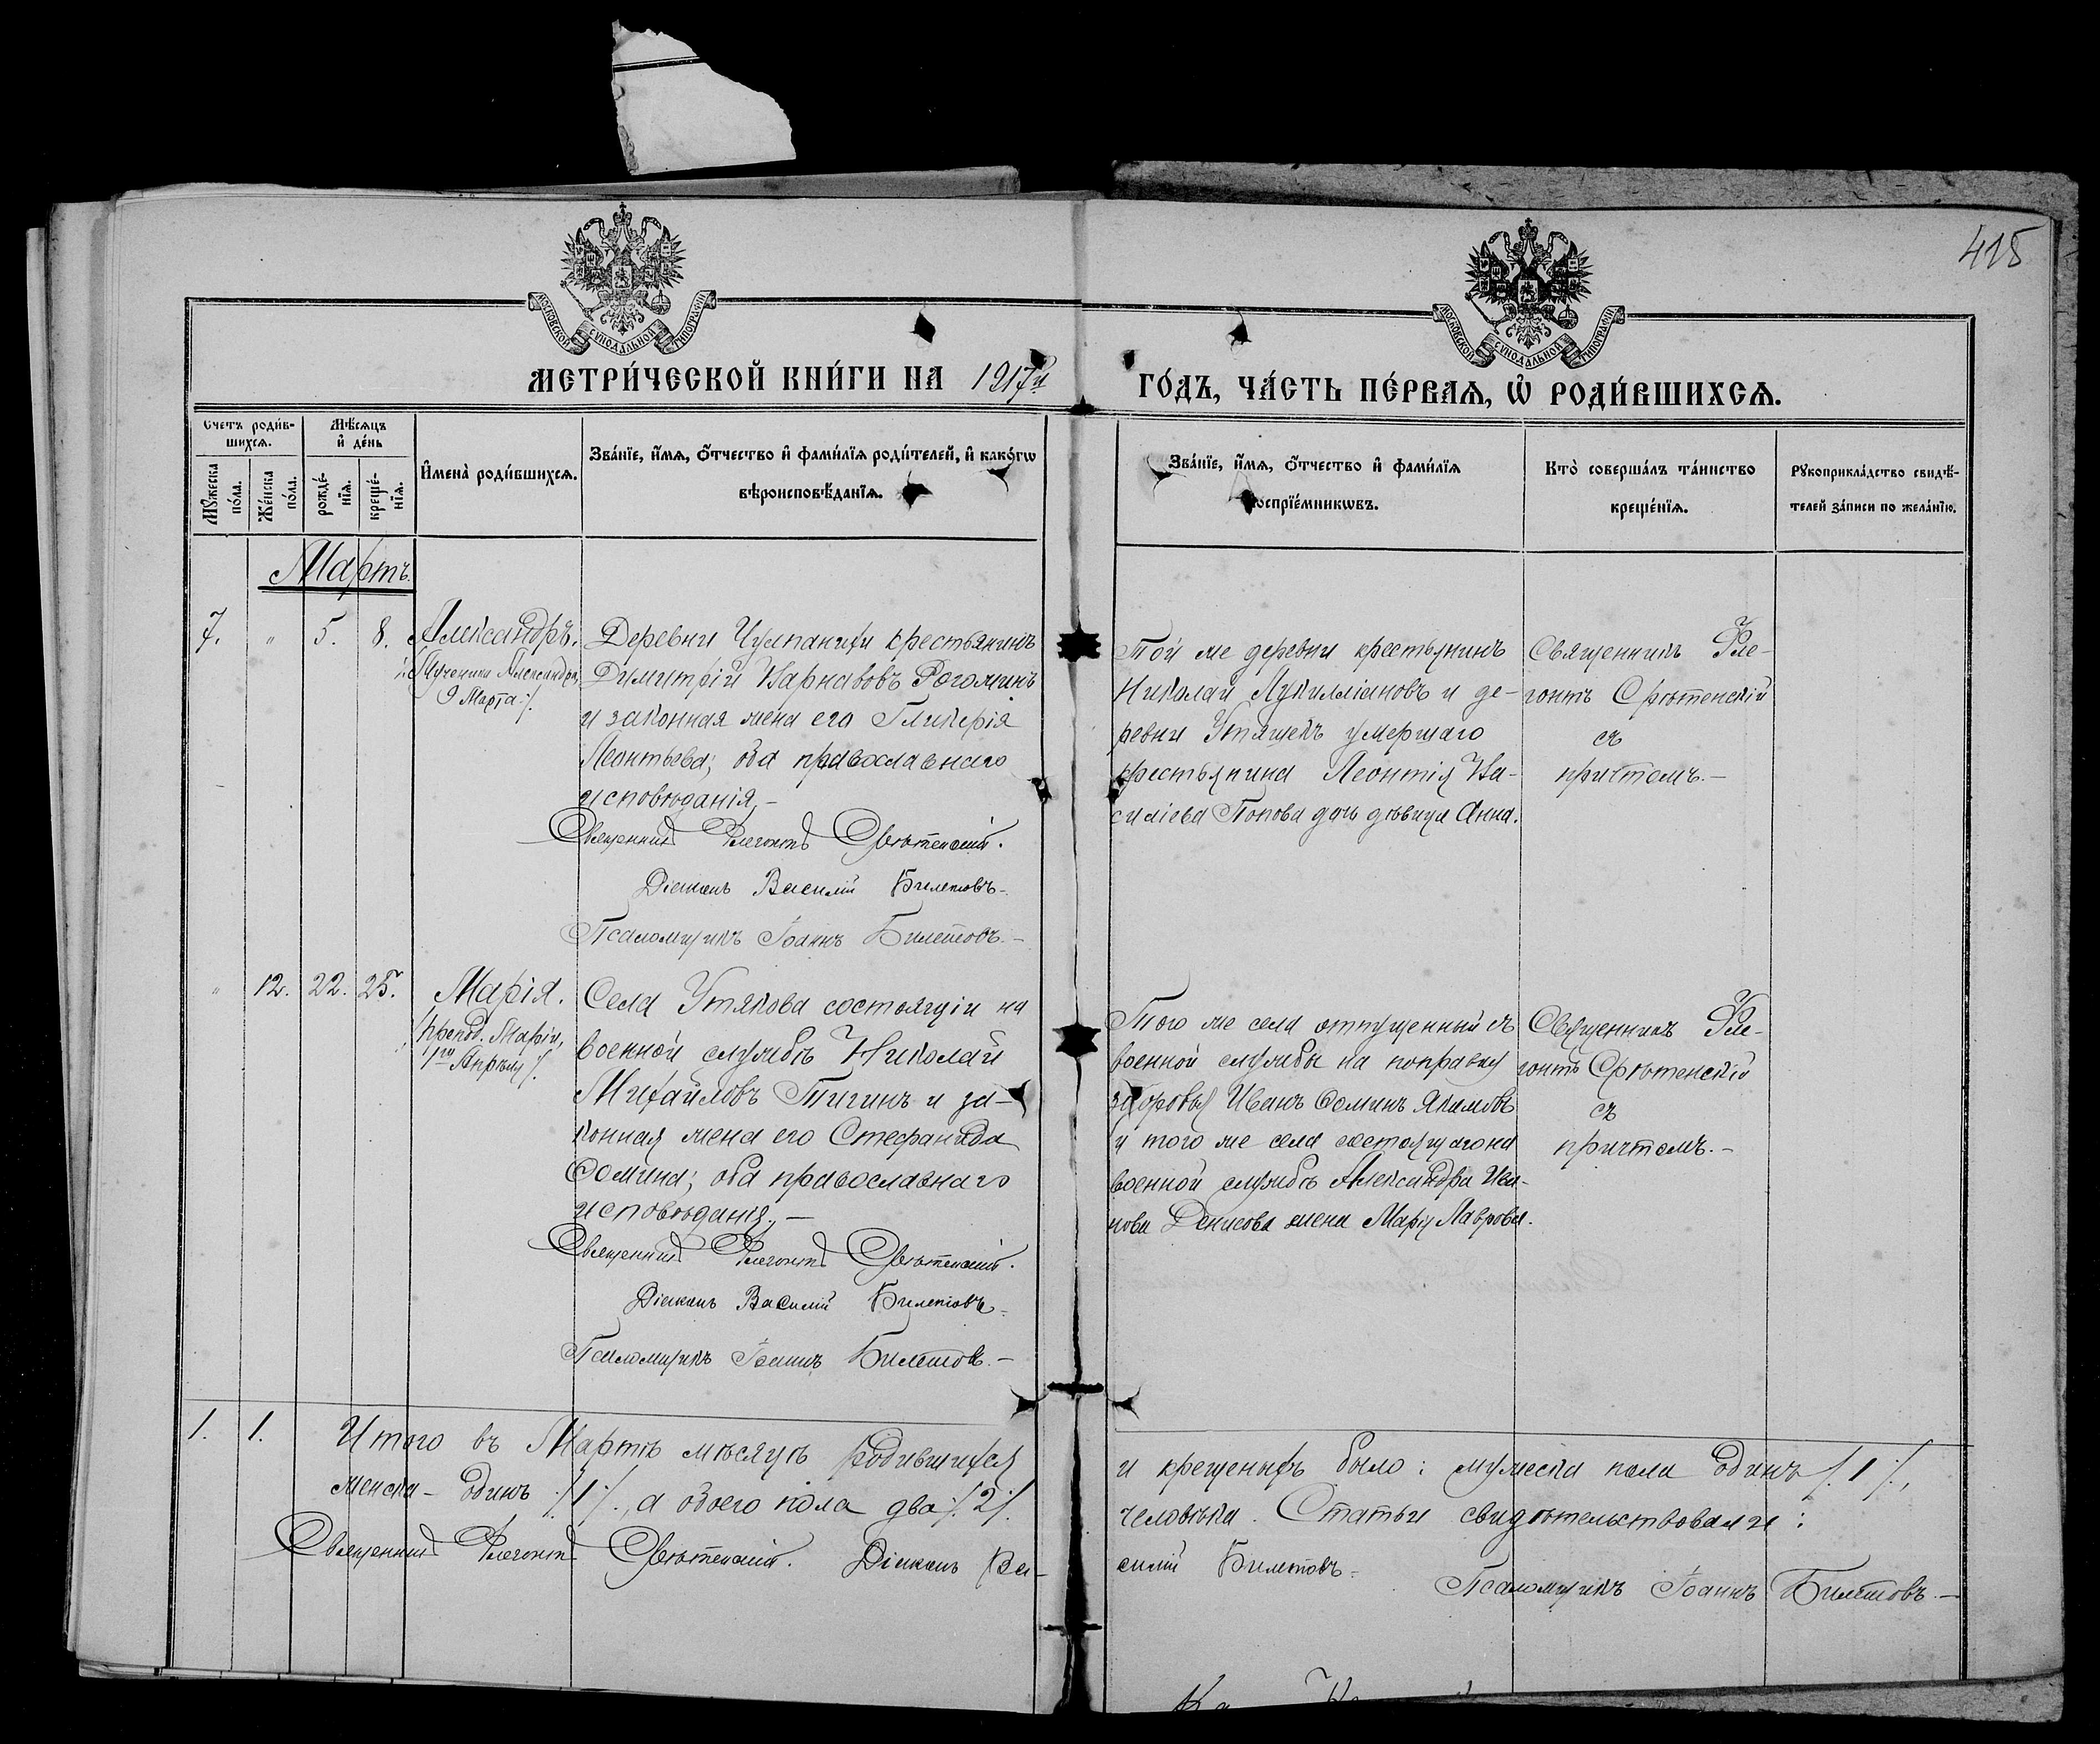 415
МОСКОВСКОЙ СѴНОДАЛЬНОЙ ТИПОГРАФІИ
МОСКОВСКОЙ СѴНОДАЛЬНОЙ ТИПОГРАФІИ
МЕТРИ́ЧЕСКОЙ КНИ́ГИ НА 1917й ГО́ДЪ, ЧА́СТЬ ПЕ́РВАѦ, Ѡ҆ РОДИ́ВШИХСѦ.
Счетъ роди́вшихсѧ.
Мꙋжеска по́ла.
Же́нска по́ла.
Мѣ́сѧцъ и҆ де́нь
рожде́нїѧ.
креще́нїѧ.
И҆мена̀ роди́вшихсѧ.
Зва́нїе, и҆́мѧ, ѻ҆́тчество и҆ фами́лїѧ роди́телей, и҆ како́гѡ
вѣроисповѣ́данїѧ.
Зва́нїе, и҆́мѧ, ѻ҆́тчество и҆ фами́лїѧ
воспрїе́мникѡвъ.
Кто̀ соверша́лъ та́инство
креще́нїѧ.
Рꙋкоприкла́дство свидѣ́-
телей за́писи по жела́нїю.
Мартъ.
7. " 5. 8. Александръ.
/:Мученика Александра,
9 Марта:/.
Деревни Чулпанихи крестьянинъ
Димитрій Варнавовъ Рогожинъ
и законная жена его Гликерія
Леонтьева; оба православнаго
исповѣданія,-
Священникъ Флегонтъ Срѣтенскій.
Діаконъ Василій Билетовъ-
Псаломщикъ Іоаннъ Билетовъ.-
Той же деревни крестьянинъ
Николай Лукилліановъ и де-
ревни Утяшекъ умершаго
крестьянина Леонтія Ва-
силіева Попова дочь дѣвица Анна.
Священникъ Фле-
гонтъ Срѣтенскій
съ
причтомъ.-
" 12. 22. 25. Марія.
/:препод. Маріи,
1го Апрѣля:/.
Села Утякова состоящій на
военной службѣ Николай
Михайловъ Тигинъ и за-
конная жена его Стефанида
Ѳомина; оба православнаго
исповѣданія.-
Священникъ Флегонтъ Срѣтенскій.
Діаконъ Василій Билетовъ-
Псаломщикъ Іоаннъ Билетовъ.-
Того же села отпущенный съ
военной службы на поправку
здоровья Иванъ Ѳоминъ Якимовъ
и того же села состоящаго на
военной службѣ Александра Ива-
нова Денисова жена Марія Лаврова.
Священникъ Фле-
гонтъ Срѣтенскій
съ
причтомъ.-
1. 1. Итого въ Мартѣ мѣсяцѣ родившихся и крещеныхъ было: мужеска пола одинъ /:1:/,
женска- одинъ /:1:/., а обоего пола два /:2:/. человѣка. Статьи свидѣтельствовали:
Священникъ Флегонтъ Срѣтенскій. Діаконъ Ва- силій Билетовъ-
Псаломщикъ Іоаннъ Билетовъ.-